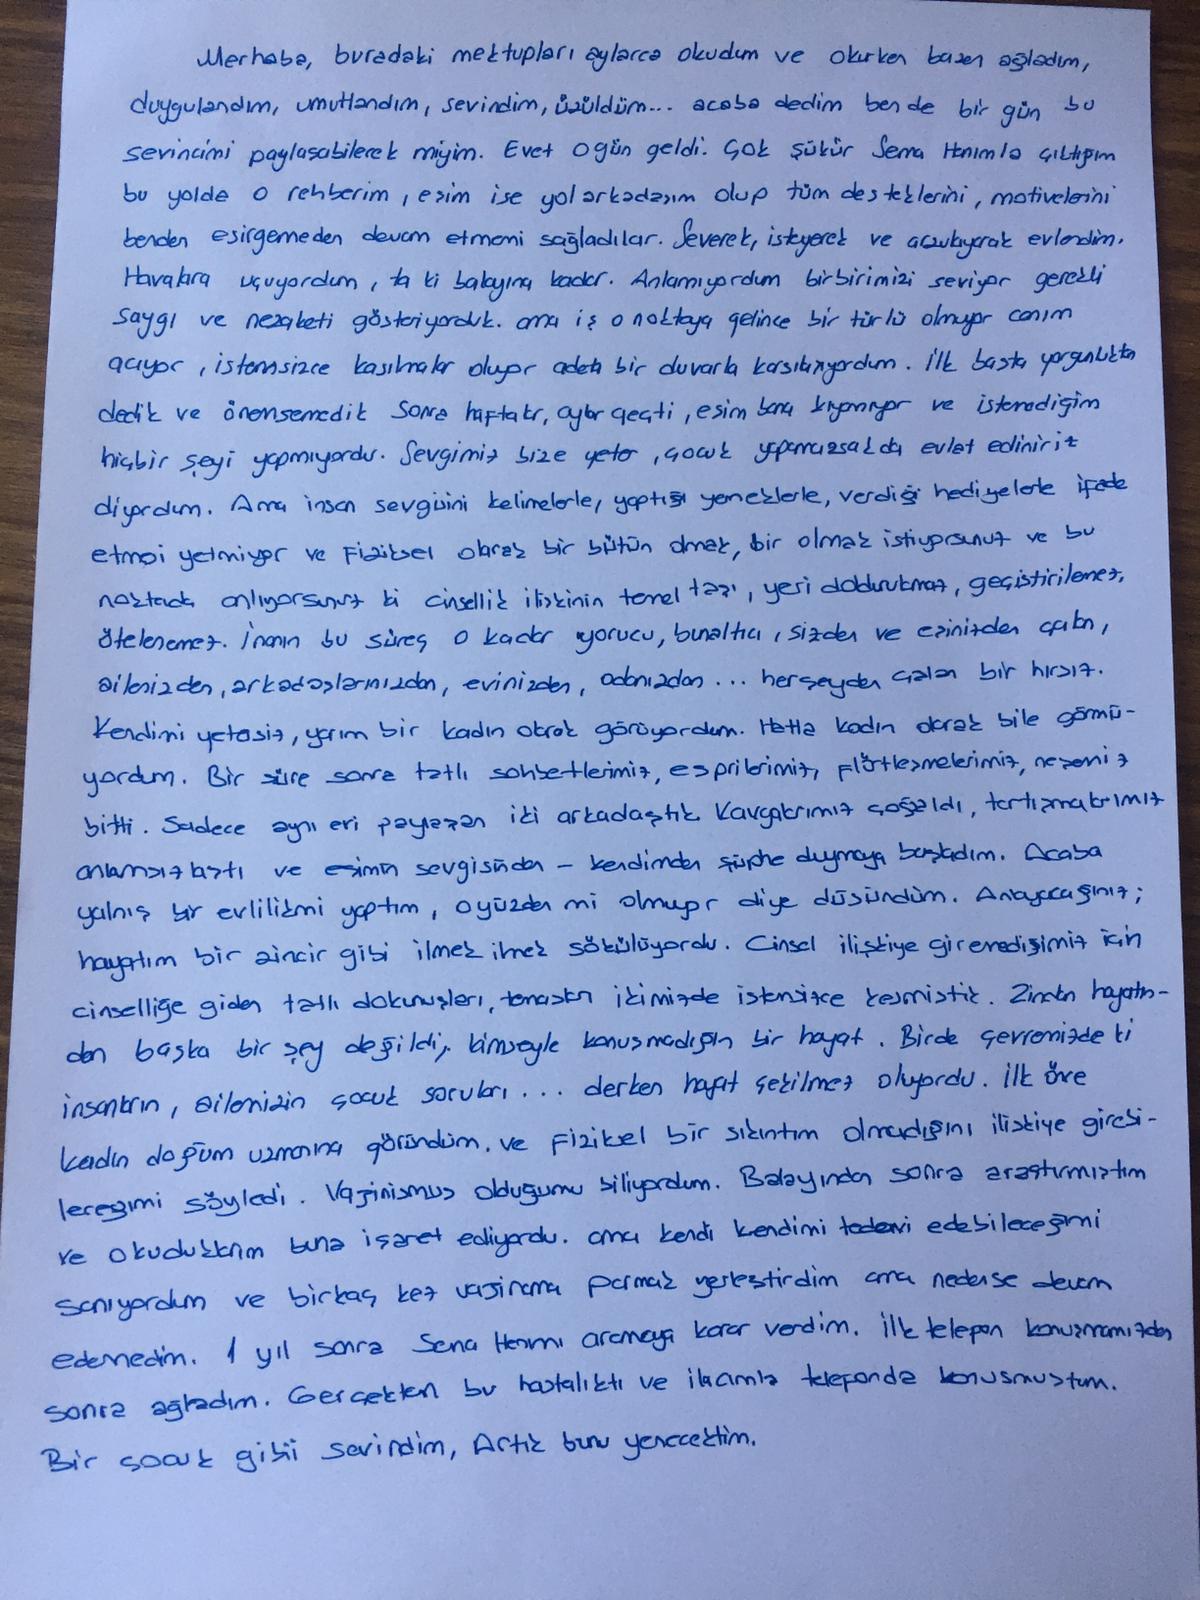 Merhaba, buradaki mektupları aylarca okudum ve okurken bazen ağladım,
duygulandım, umutlandım, sevindim, üzüldüm... acaba dedim bende bir gün bu
sevincimi paylaşabilecek miyim. Evet o gün geldi. Çok şükür Sema Hanımla çıktığım
bu yolda o rehberim, eşim ise yol arkadaşım olup tüm desteklerini, motivelerini
benden esirgemeden devam etmemi sağladılar. Severek, isteyerek ve arzulayarak evlendim.
Havalara uçuyordum, ta ki balayına kadar. Anlamıyordum birbirimizi seviyor gerekli
saygı ve nezaketi gösteriyorduk. ama iş o noktaya gelince bir türlü olmuyor canım
acıyor, istemsizce kasılmalar oluyor adeta bir duvarla karşılaşıyordum. İlk başta yorgunluktan
dedik ve önemsemedik sonra haftalar, aylar geçti, eşim bana kıyamıyor ve istemediğim
hiçbir şeyi yapmıyordu. Sevgimiz bize yeter, çocuk yapamazsakda evlat ediniriz
diyordum. Ama insan sevgisini kelimelerle, yaptığı yemeklerle, verdiği hediyelerle ifade
etmesi yetmiyor ve fiziksel olarak bir bütün olmak, bir olmak istiyorsunuz ve bu
noktada anlıyorsunuz ki cinsellik ilişkinin temel taşı, yeri doldurulmaz, geçiştirilemez,
ötelenemez. İnanın bu süreç o kadar yorucu, bunaltıcı, sizden ve eşinizden çalan,
ailenizden, arkadaşlarınızdan, evinizden, odanızdan... herşeyden çalan bir hırsız.
Kendimi yetersiz, yarım bir kadın olarak görüyordum. Hatta kadın olarak bile görmü-
yordum. Bir süre sonra tatlı sohbetlerimiz, esprilerimiz, flörtleşmelerimiz, neşemiz
bitti. Sadece aynı evi paylaşan iki arkadaştık. Kavgalarımız çoğaldı, tartışmalarımız
anlamsızlaştı ve eşimin sevgisinden - kendimden şüphe duymaya başladım. Acaba
yalnış bir evlilikmi yaptım, oyüzden mi olmuyor diye düşündüm. Anlayacağınız;
hayatım bir zincir gibi ilmek ilmek sökülüyordu. Cinsel ilişkiye giremediğimiz için
cinselliğe giden tatlı dokunuşları, temasları ikimizde istemsizce kesmiştik. Zindan hayatın-
dan başka bir şey değildi, kimseyle konuşmadığın bir hayat. Birde çevremizde ki
insanların, ailemizin çocuk soruları... derken hayat çekilmez oluyordu. İlk öne
kadın doğum uzmanına göründüm. ve fiziksel bir sıkıntım olmadığını ilişkiye girebi-
leceğimi söyledi. Vajinismus olduğumu biliyordum. Balayından sonra araştırmıştım
ve okuduklarım buna işaret ediyordu. ama kendi kendimi tedavi edebileceğimi
sanıyordum ve birkaç kez vajinama parmak yerleştirdim ama nedense devam
edemedim. 1 yıl sonra Sema Hanımı aramaya karar verdim. İlk telepon konuşmamızdan
sonra ağladım. Gerçekten bu hastalıktı ve ilacımla telefonda konuşmuştum.
Bir çocuk gibi sevindim, Artık bunu yenecektim.